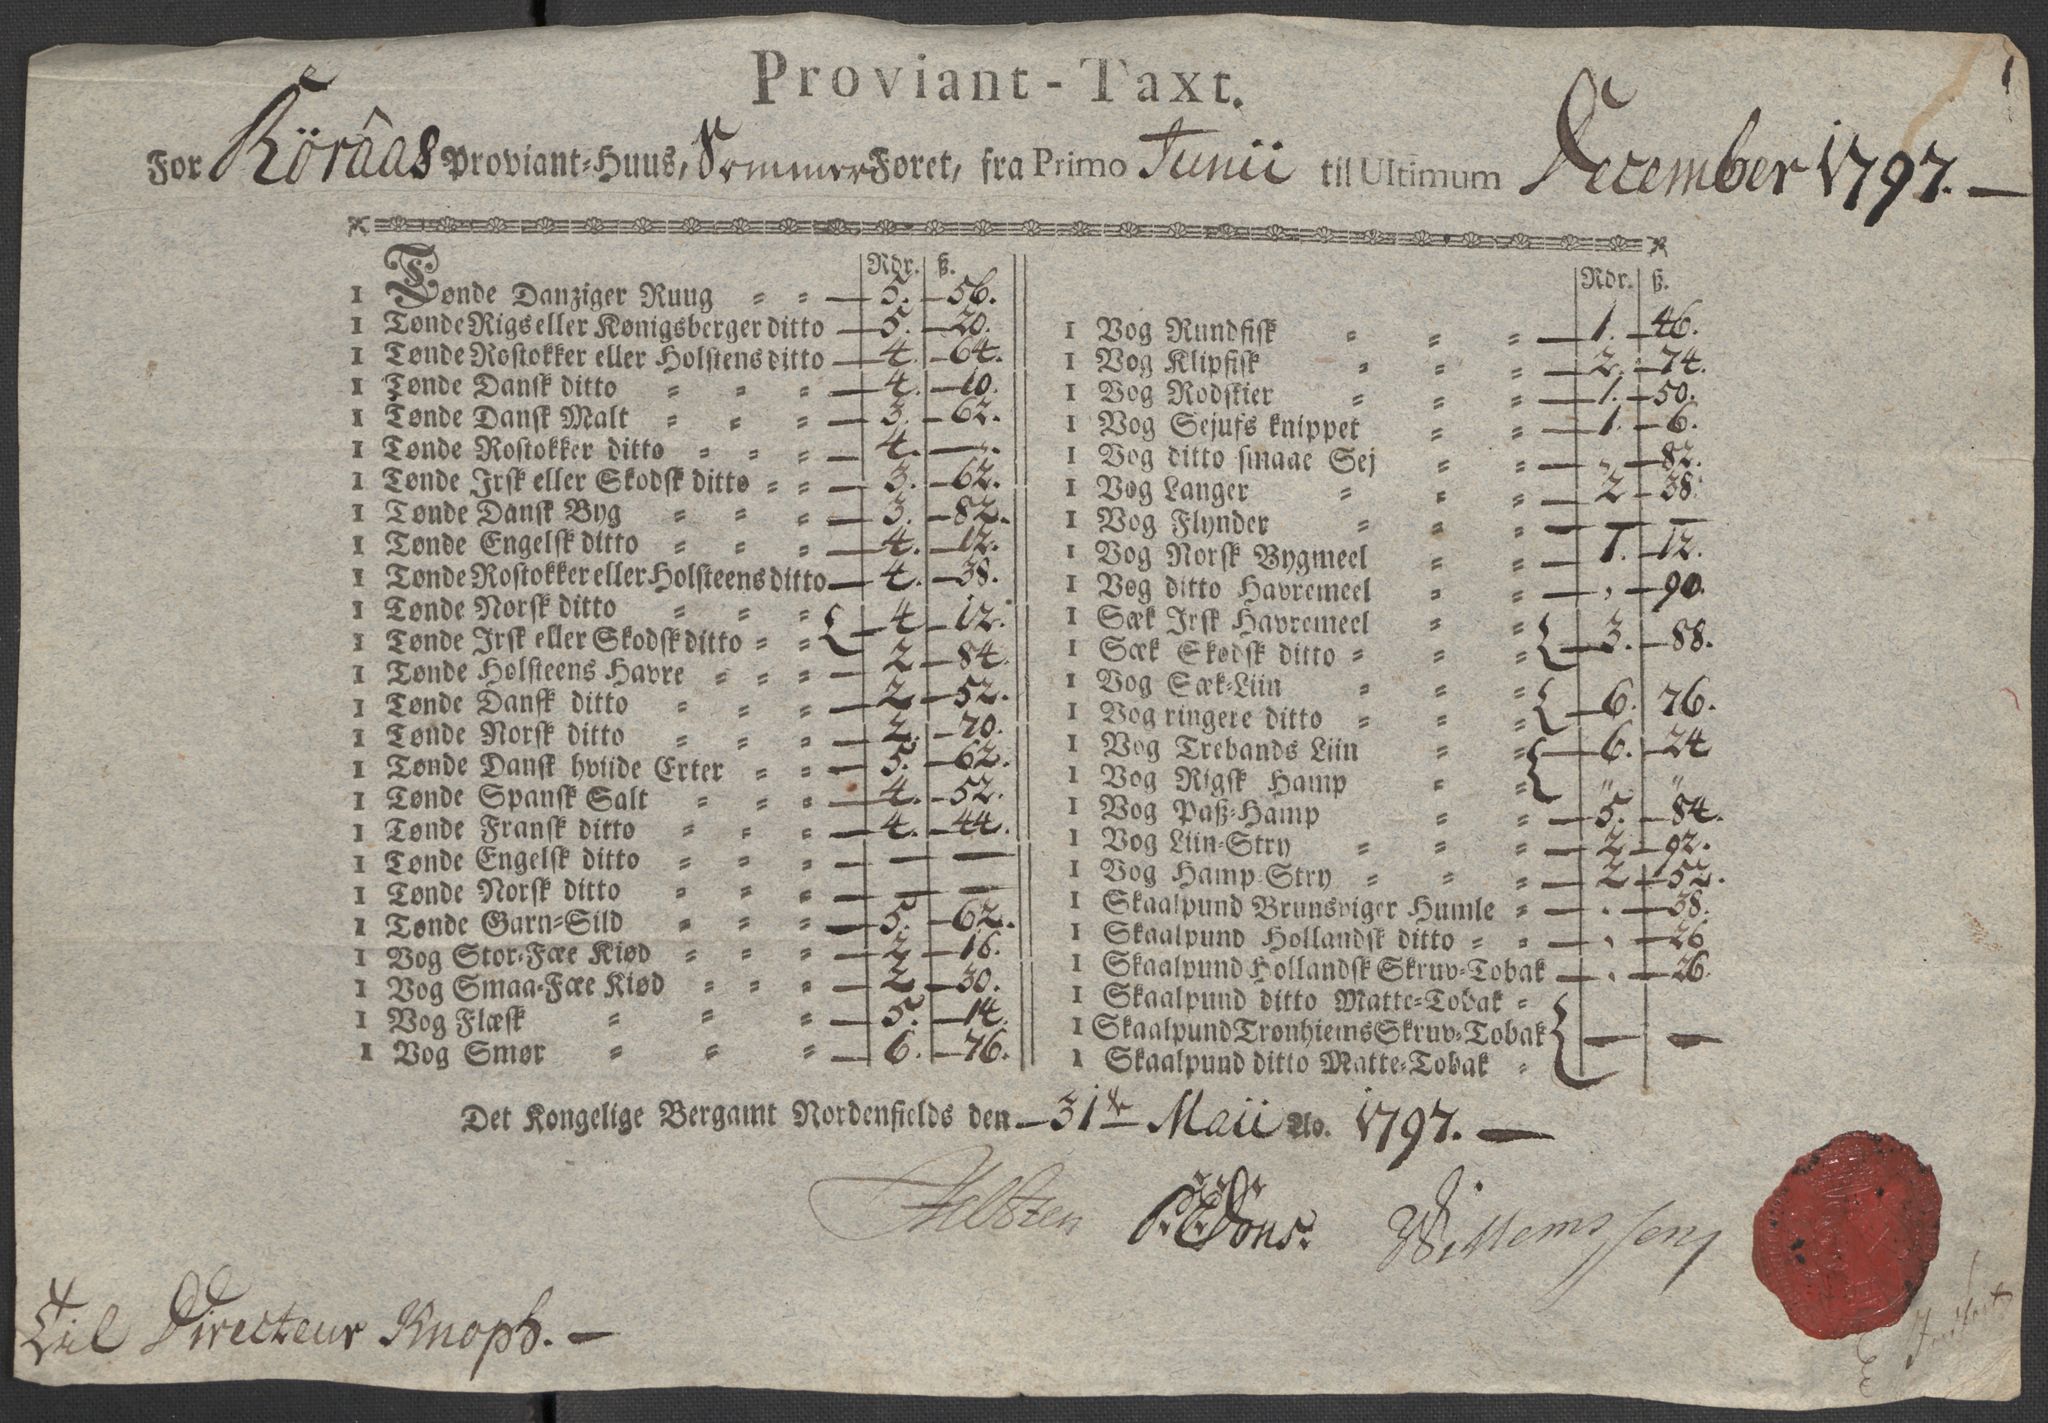 Proviant-Taxt.
For Röraas Proviant-Huus, SommerFøret, fra Primo Junii til Ultimum December 1797.—
Rdr. ß.
1 Tønde Danziger Ruug " " — 5. — 56.
1 Tønde Rigs eller Kønigsberger ditto — 5. — 20.
1 Tønde Rostokker eller Holstens ditto — 4. — 64.
1 Tønde Dansk ditto " " " — 4. — 10.
1 Tønde Dansk Malt " " " — 3. — 62.
1 Tønde Rostokker ditto " " " — 4. — ".
1 Tønde Irsk eller Skodsk ditto " " — 3. — 62.
1 Tønde Dansk Byg " " " — 3. — 82.
1 Tønde Engelsk ditto " " " — 4. — 12.
1 Tønde Rostokker eller Holsteens ditto — 4. — 38.
1 Tønde Norsk ditto " " " { 4. — 12.
1 Tønde Irsk eller Skodsk ditto " "
1 Tønde Holsteens Havre " " " — 2 — 84.
1 Tønde Dansk ditto " " " — 2 — 52.
1 Tønde Norsk ditto " " " — 2. — 20.
1 Tønde Dansk hviide Erter " " — 5. — 62.
1 Tønde Spansk Salt " " " — 4. — 52.
1 Tønde Fransk ditto " " " — 4. — 44.
1 Tønde Engelsk ditto " " " — — —
1 Tønde Norsk ditto " " " — — —
1 Tønde Garn-Sild " " " — 5. — 62.
1 Vog Stor-Fæe Kiød " " " — 2 — 16.
1 Vog Smaa-Fæe Kiød " " " — 2 — 30.
1 Vog Flæsk " " " — 5. — 14.
1 Vog Smør " " " — 6. — 76.
Rdr. ß.
1 Vog Rundfisk " " " — 1. — 46.
1 Vog Klipfisk " " " — 2. — 74.
1 Vog Rodskier " " " — 1. — 50.
1 Vog Sejufs knippet " " — 1. — 6.
1 Vog ditto smaae Sej " " — " — 82.
1 Vog Langer " " " — 2 — 38.
1 Vog Flynder " " " — — —
1 Vog Norsk Bygmeel " " — 1. — 12.
1 Vog ditto Havremeel " " — " — 90.
1 Sæk Irsk Havremeel " " { 3. — 88.
1 Sæk Skodsk ditto " " "
1 Vog Sæk-Liin " " " { 6. 76.
1 Vog ringere ditto " " "
1 Vog Trebands Liin " " { 6. — 24
1 Vog Rigsk Hamp " " " "
1 Vog Paß-Hamp " " — 5. — 84.
1 Vog Liin-Stry " " " — 2 — 92.
1 Vog Hamp-Stry " " " — 2 — 52.
1 Skaalpund Brunsviger Humle " — " — 38.
1 Skaalpund Hollandsk ditto " " — " — 26
1 Skaalpund Hollandsk Skruv-Tobak — " — 26.
1 Skaalpund ditto Matte-Tobak "
1 Skaalpund Trønhiems Skruv-Tobak { — —
1 Skaalpund ditto Matte-Tobak "
Det Kongelige Bergamt Nordenfields den — 31te Maii Ao. 1797. —
P. E. Dons.
Til Directeur Knoph. —